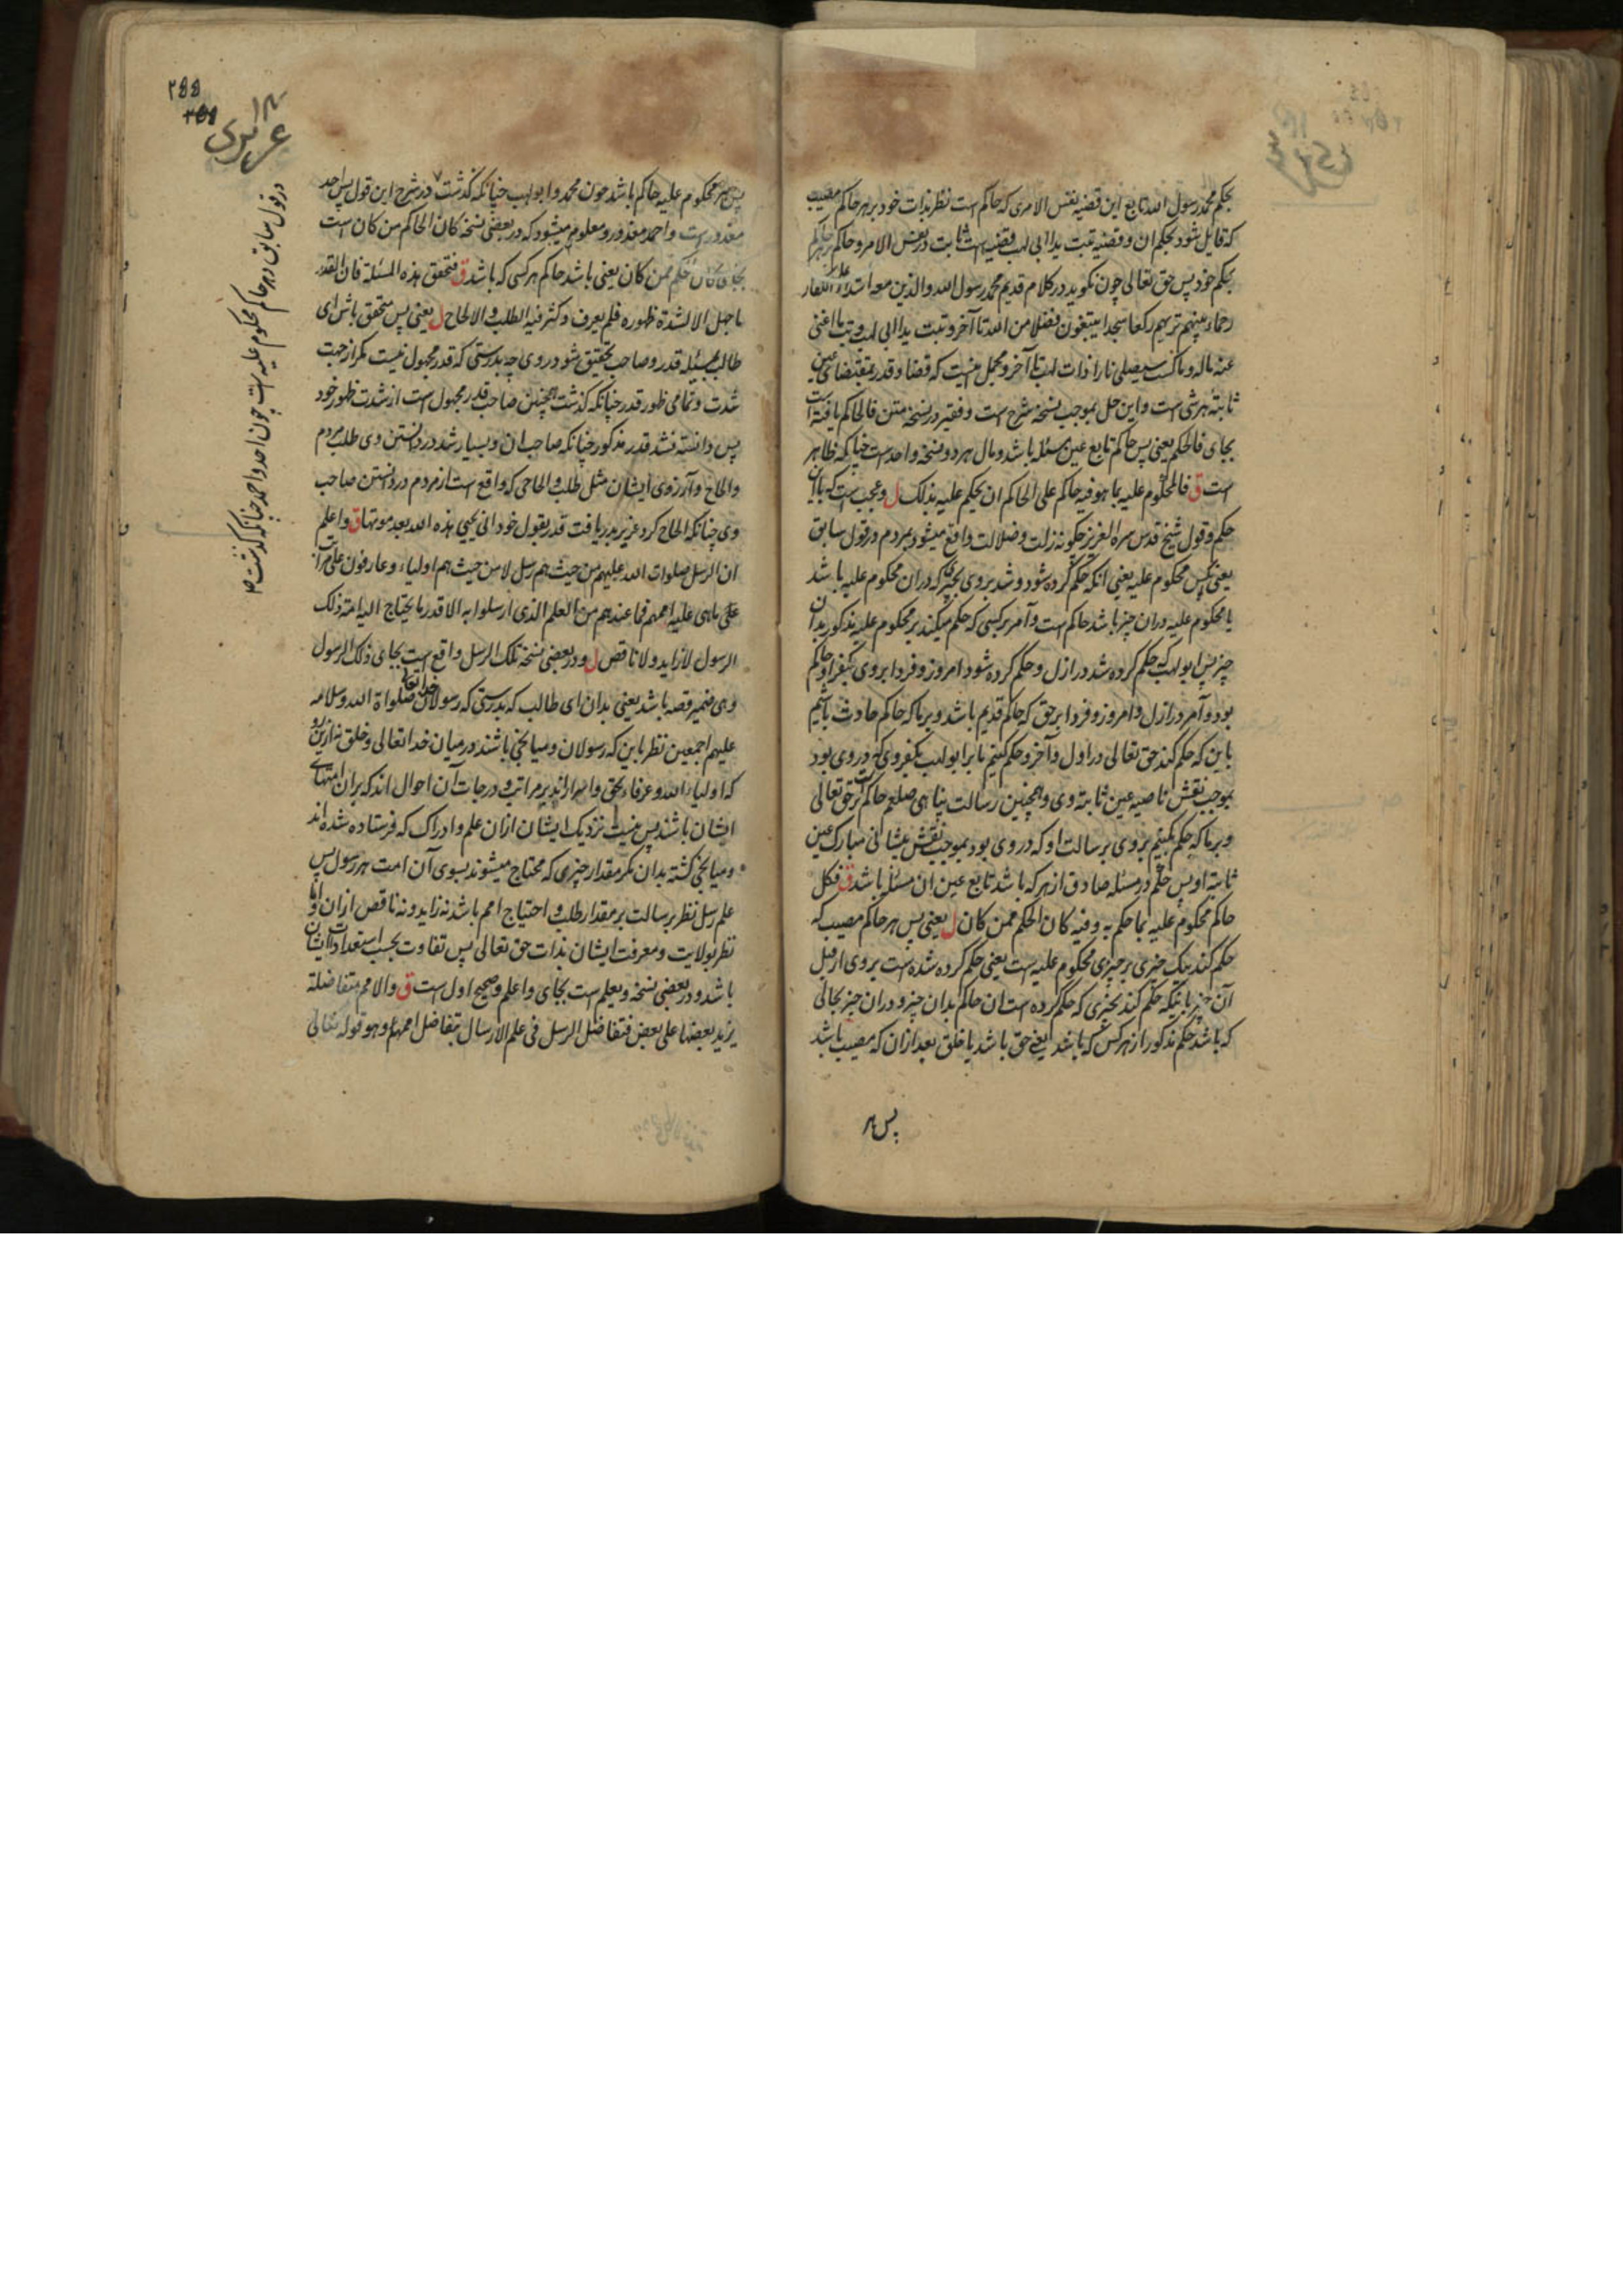 بحکم محمد رسول الله تابع این قضیه نفس الامری که حاکم است نظر بذات خود بر هر حاکم مصیب
که قایل شود بحکم ان و قضیه تبت یدا ابی لهب قضیه است ثابت در نفس الامر و حاکم بر حاکم
بحکم خود پس حق تعالی چون نگوید در کلام قدیم محمد رسول الله والذین معه اشداء علی الکفار
رحماء بینهم تریهم رکعا سجدا یبتغون فضلا من الله تا آخر و تبت یدا ابی لهب و تب ما اغنی
عنه ماله وما کسب سیصلی نارا ذات لهب تا آخر و مجمل نیست که قضا و قدر بمقتضای عین
ثابته هر شی است و این حل بموجب نسخه شرح است و فقیر در نسخه متن فالحاکم یافته است
بجای فالحکم یعنی پس حاکم تابع عین مسئله باشد و مال هر دو نسخه واحد است چنانکه ظاهر
است ق فالمحکوم علیه بما هو فیه حاکم علی الحاکم ان یحکم علیه بذلک ل و عجب است که باین
حکم و قول شیخ قدس سره العزیز چگونه زلت و ضلالت واقع میشود بمردم در قول سابق
یعنی پس محکوم علیه یعنی آنکه حکم کرده شود و شد بروی بچیزیکه در ان محکوم علیه باشد
یا محکوم علیه در ان چیز باشد حاکم است و آمر بر کسی که حکم میکند بر محکوم علیه مذکور بدان
چیز پس ابو لهب که حکم کرده شد در ازل و حکم کرده شود امروز و فردا بروی بکفر او حاکم
بود و آمر در ازل و امروز و فردا بر حق که حاکم قدیم باشد و بر ما که حاکم حادث باشیم
باین که حکم کند حق تعالی در اول و آخر و حکم کنیم ما بر ابو لهب بکفر وی که در وی بود
بموجب نقش ناصیه عین ثابته وی و همچنین رسالت پناهی صلعم حاکم است بر حق تعالی
و بر ما که حکم بکنیم بروی برسالت او که در وی بود بموجب نقش پیشانی مبارک عین
ثابته او پس حکم در مسئله صادق از هر که باشد تابع عین ان مسئله باشد ق فکل
حاکم محکوم علیه بما حکم به و فیه کان الحکم ممن کان ل یعنی پس هر حاکم مصیب که
حکم کند بیک چیزی بر چیزی محکوم علیه است یعنی حکم کرده شده است بروی از قبل
آن چیز باینکه حکم کند بچیزی که حکم کرده است ان حاکم بدان چیز و در ان چیز بحالی
که باشد حکم مذکور از هر کس که باشد یعنی حق باشد یا خلق بعد ازان که مصیب باشد
پس هر
۲۵۵
عزیزی
پس هر محکوم علیه حاکم باشد چون محمد و ابو لهب چنانکه گذشت در شرح این قول پس احد
مقدور است و احمد مقدور و معلوم میشود که در بعضی نسخه کان الحاکم من کان است
بجای کان الحکم ممن کان یعنی باشد حاکم هر کسی که باشد ق فتحقق هذه المسئلة فان القدر
ما جهل الا لشدة ظهوره فلم یعرف و کثر فیه الطلب و الالحاح ل یعنی پس متحقق باش ای
طالب بمسئله قدر و صاحب تحقیق شو در وی چه بدرستی که قدر مجهول نیست مگر از جهت
شدت و تمامی ظهور قدر چنانکه گذشت همچنین صاحب قدر مجهول است از شدت ظهور خود
پس دانسته نشد قدر مذکور چنانکه صاحب ان و بسیار شد در دانستن وی طلب مردم
و الحاح و آرزوی ایشان مثل طلب و الحاحی که واقع است از مردم در دانستن صاحب
وی چنانکه الحاح کرد عزیر بدریافت قدر بقول خود انی یحیی هذه الله بعد موتها ق واعلم
ان الرسل صلوات الله علیهم من حیث هم رسل لا من حیث هم اولیاء و عارفون علی مراتب
علی ما هی علیه اممهم فما عندهم من العلم الذی ارسلوا به الا قدر ما یحتاج الیه امة ذلک
الرسول لا زاید ولا ناقص ل و در بعضی نسخه تلک الرسل واقع است بجای ذلک الرسول
و هی ضمیر قصه باشد یعنی بدان ای طالب که بدرستی که رسولان خدا تعالی صلواة الله و سلامه
علیهم اجمعین نظر باین که رسولان و میانجی باشند در میان خدا تعالی و خلق نه ازین رو
که اولیاء الله و عرفاء بحق و اسرار اند بر مراتب و درجات آن احوال اند که بران امتهای
ایشان باشند پس نیست نزدیک ایشان ازان علم و ادراک که فرستاده شده اند
و میانجی گشته بدان مگر مقدار چیزی که محتاج میشوند بسوی آن امت هر رسول پس
علم رسل نظر برسالت بر مقدار طلب و احتیاج امم باشد نه زاید و نه ناقص ازان و اما
نظر بولایت و معرفت ایشان بذات حق تعالی پس تفاوت بحسب استعدادات ایشان
باشد و در بعضی نسخه و یعلم است بجای واعلم و صحیح اول است ق والامم متفاضلة
یزید بعضها علی بعض فتفاضل الرسل فی علم الارسال بتفاضل اممهم و هو قوله تعالی
در قول سابق و هر حاکم محکوم علیه است چون احد و احمد چنانکه گذشت